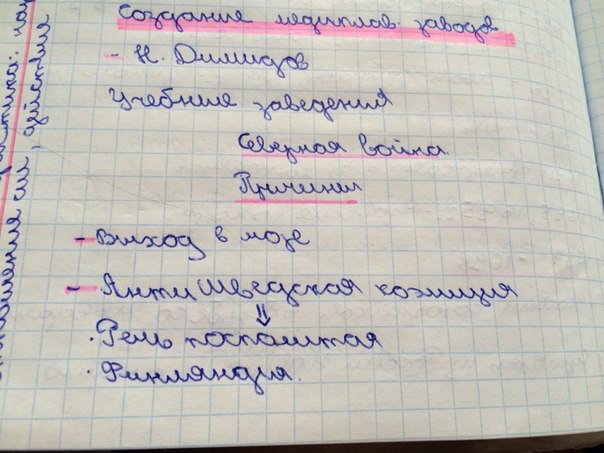 Создание медиплав. заводов
- Н. Димидов
Учебные заведения
Северная война
Причины
- Выход в море
- Анти Шведская коэлиция
⇓
· Речь посполитая
· Финляндия.
действия